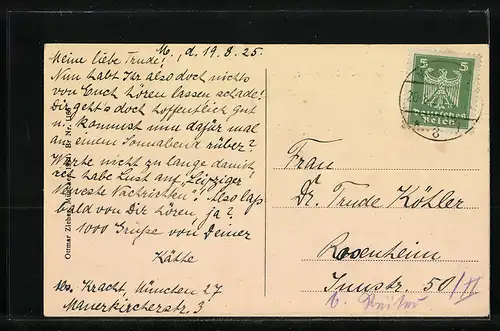 M., d. 19.8.25.
Meine liebe Trude!
Nun habt Ihr also doch nichts
von Euch hören lassen schade!
Dir geht's doch hoffentlich gut
u. kommst nun dafür mal
an einem Sonnabend rüber?
Warte nicht zu lange damit,
ich habe Lust auf „Leipziger
Neueste Nachrichten"! Also laß
bald von Dir hören, ja?
1000 Grüße von Deiner
Käthe
Abs. Kracht, München 27
Mauerkircherstr. 3
Ottmar Zieher,
5 5
Deutsches
Reich
Frau
Dr. Trude Köhler
Rosenheim
Innstr. 50/II
b. Reiter